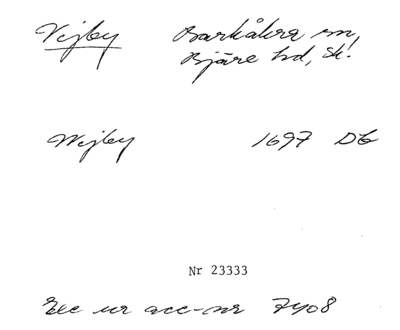 Vejby Barkåkra sn,
Bjäre hd, Sk.
Wejby 1697 Db
Nr 23333
Exc ur acc-nr 7408